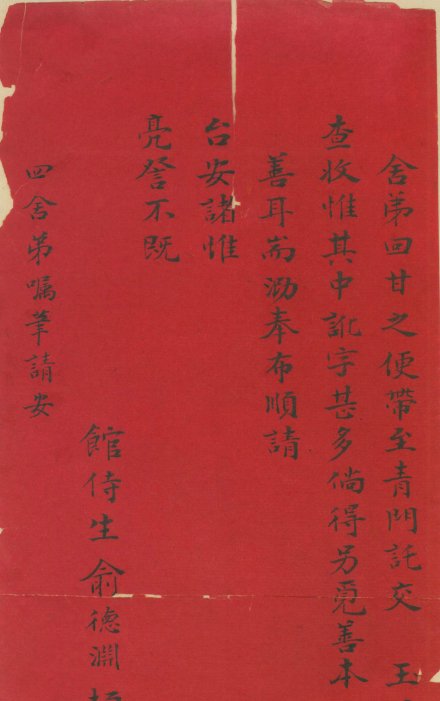 舍弟回甘之便帶至青門託交　玉
查收惟其中訛字甚多倘得另覓善本
善耳耑泐奉布順請
台安諸惟
亮詧不既
館侍生俞德淵
四舍弟嘱筆請安